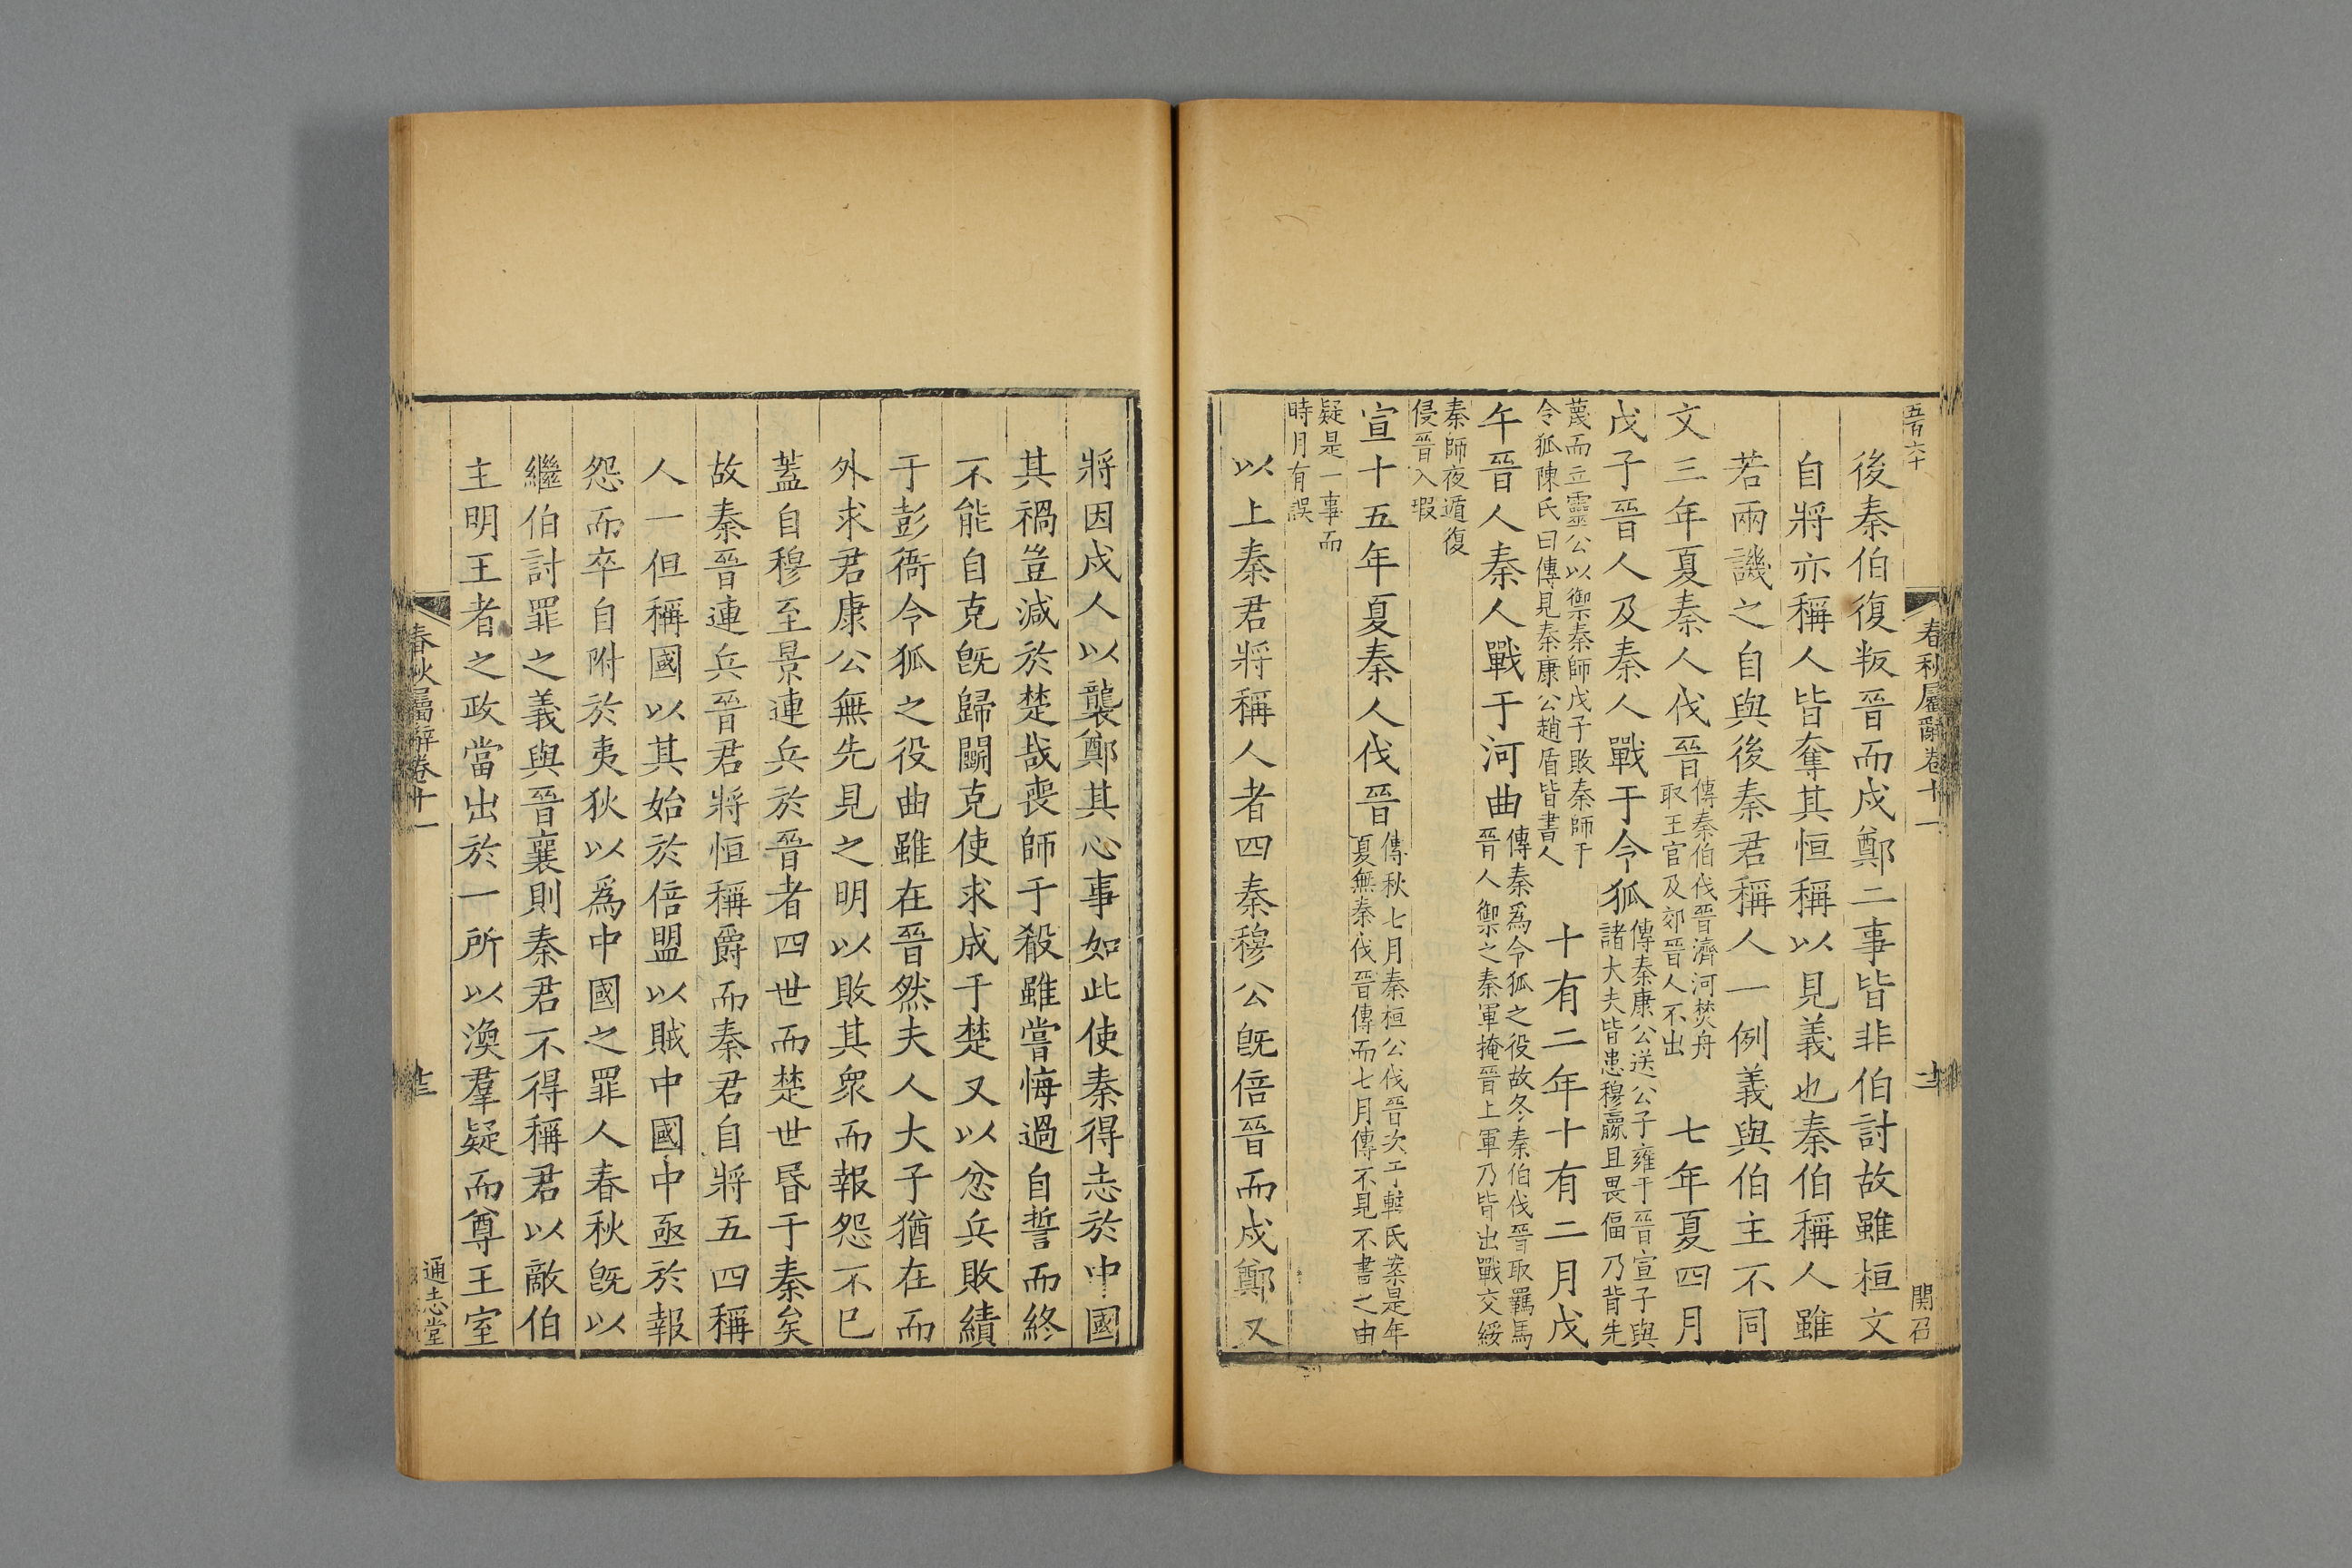 五百六十
春秋屬辭卷十一
開召
後秦伯復叛晉而戍鄭二事皆非伯討故雖桓文
自將亦稱人皆奪其恒稱以見義也秦伯稱人雖
若兩譏之自與後秦君稱人一例義與伯主不同
文三年夏秦人伐晉傳秦伯伐晉濟河焚舟取王官及郊晉人不出 七年夏四月
戊子晉人及秦人戰于令狐傳秦康公送公子雍于晉宣子與諸大夫皆患穆嬴且畏偪乃背先
蔑而立靈公以禦秦師戊子敗秦師于令狐陳氏曰傳見秦康公趙盾皆書人 十有二年十有二月戊
午晉人秦人戰于河曲傳秦爲令狐之役故冬秦伯伐晉取羈馬晉人禦之秦軍掩晉上軍乃皆出戰交綏
秦師夜遁復侵晉入瑕
宣十五年夏秦人伐晉傳秋七月秦桓公伐晉次于輔氏案是年夏無秦伐晉傳而七月傳不見不書之由
疑是一事而時月有誤
以上秦君將稱人者四秦穆公旣倍晉而戍鄭又
將因戍人以襲鄭其心事如此使秦得志於中國
其禍豈減於楚哉喪師于殽雖嘗悔過自誓而終
不能自克旣歸鬭克使求成于楚又以忿兵敗績
于彭衙令狐之役曲雖在晉然夫人大子猶在而
外求君康公無先見之明以敗其衆而報怨不已
蓋自穆至景連兵於晉者四世而楚世昏于秦矣
故秦晉連兵晉君將恒稱爵而秦君自將五四稱
人一但稱國以其始於倍盟以賊中國中亟於報
怨而卒自附於夷狄以爲中國之罪人春秋旣以
繼伯討罪之義與晉襄則秦君不得稱君以敵伯
主明王者之政當出於一所以渙羣疑而尊王室
春秋屬辭卷十一
通志堂